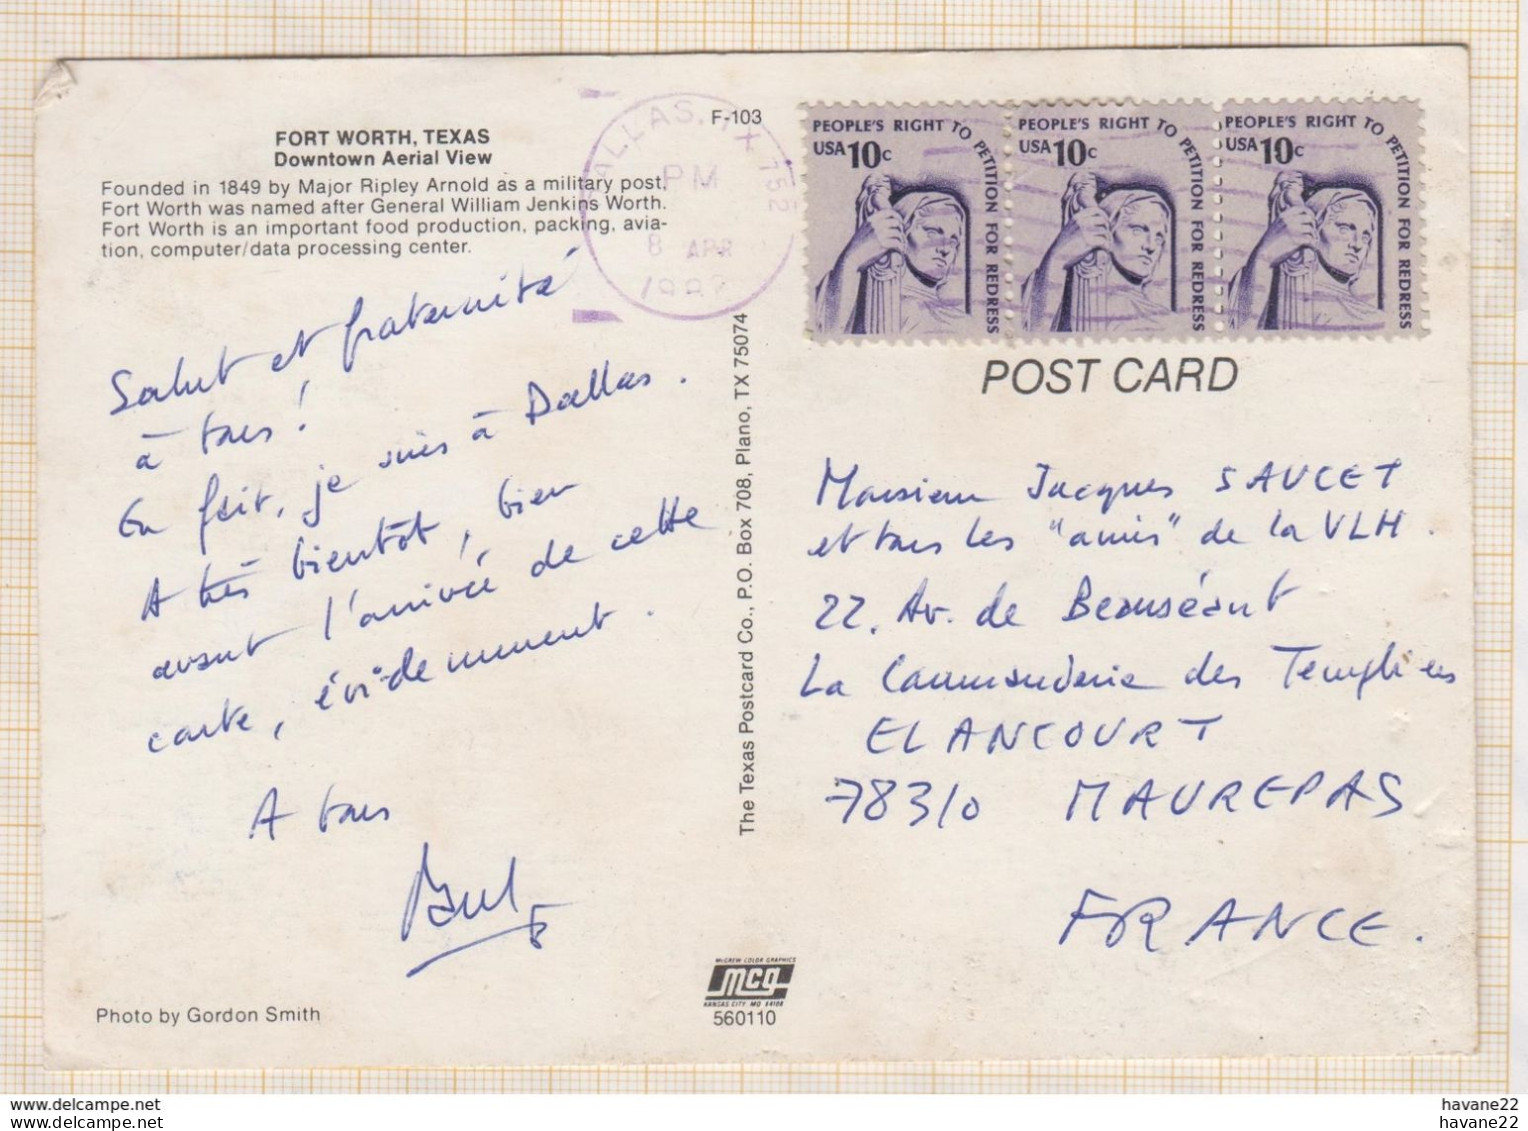 FORT WORTH, TEXAS
Downtown Aerial View
Founded in 1849 by Major Ripley Arnold as a military post,
Fort Worth was named after General William Jenkins Worth.
Fort Worth is an important food production, packing, avia-
tion, computer/data processing center.
Salut et fraternité
à tous !
En fait, je suis à Dallas.
A très bientôt, bien
avant l'arrivée de cette
carte, évidemment.
A tous
Paul
Photo by Gordon Smith
F-103
DALLAS, TX 752
PM
8 APR
The Texas Postcard Co., P.O. Box 708, Plano, TX 75074
McGREW COLOR GRAPHICS
mcg
KANSAS CITY, MO 64108
560110
PEOPLE'S RIGHT TO PETITION FOR REDRESS
USA 10c
PEOPLE'S RIGHT TO PETITION FOR REDRESS
USA 10c
PEOPLE'S RIGHT TO PETITION FOR REDRESS
USA 10c
POST CARD
Monsieur Jacques SAUCET
et tous les "amis" de la VLH.
22, Av. de Beauséant
La Commanderie des Templiers
ELANCOURT
78310 MAUREPAS
FRANCE.
havane22
havane22
havane22
havane22